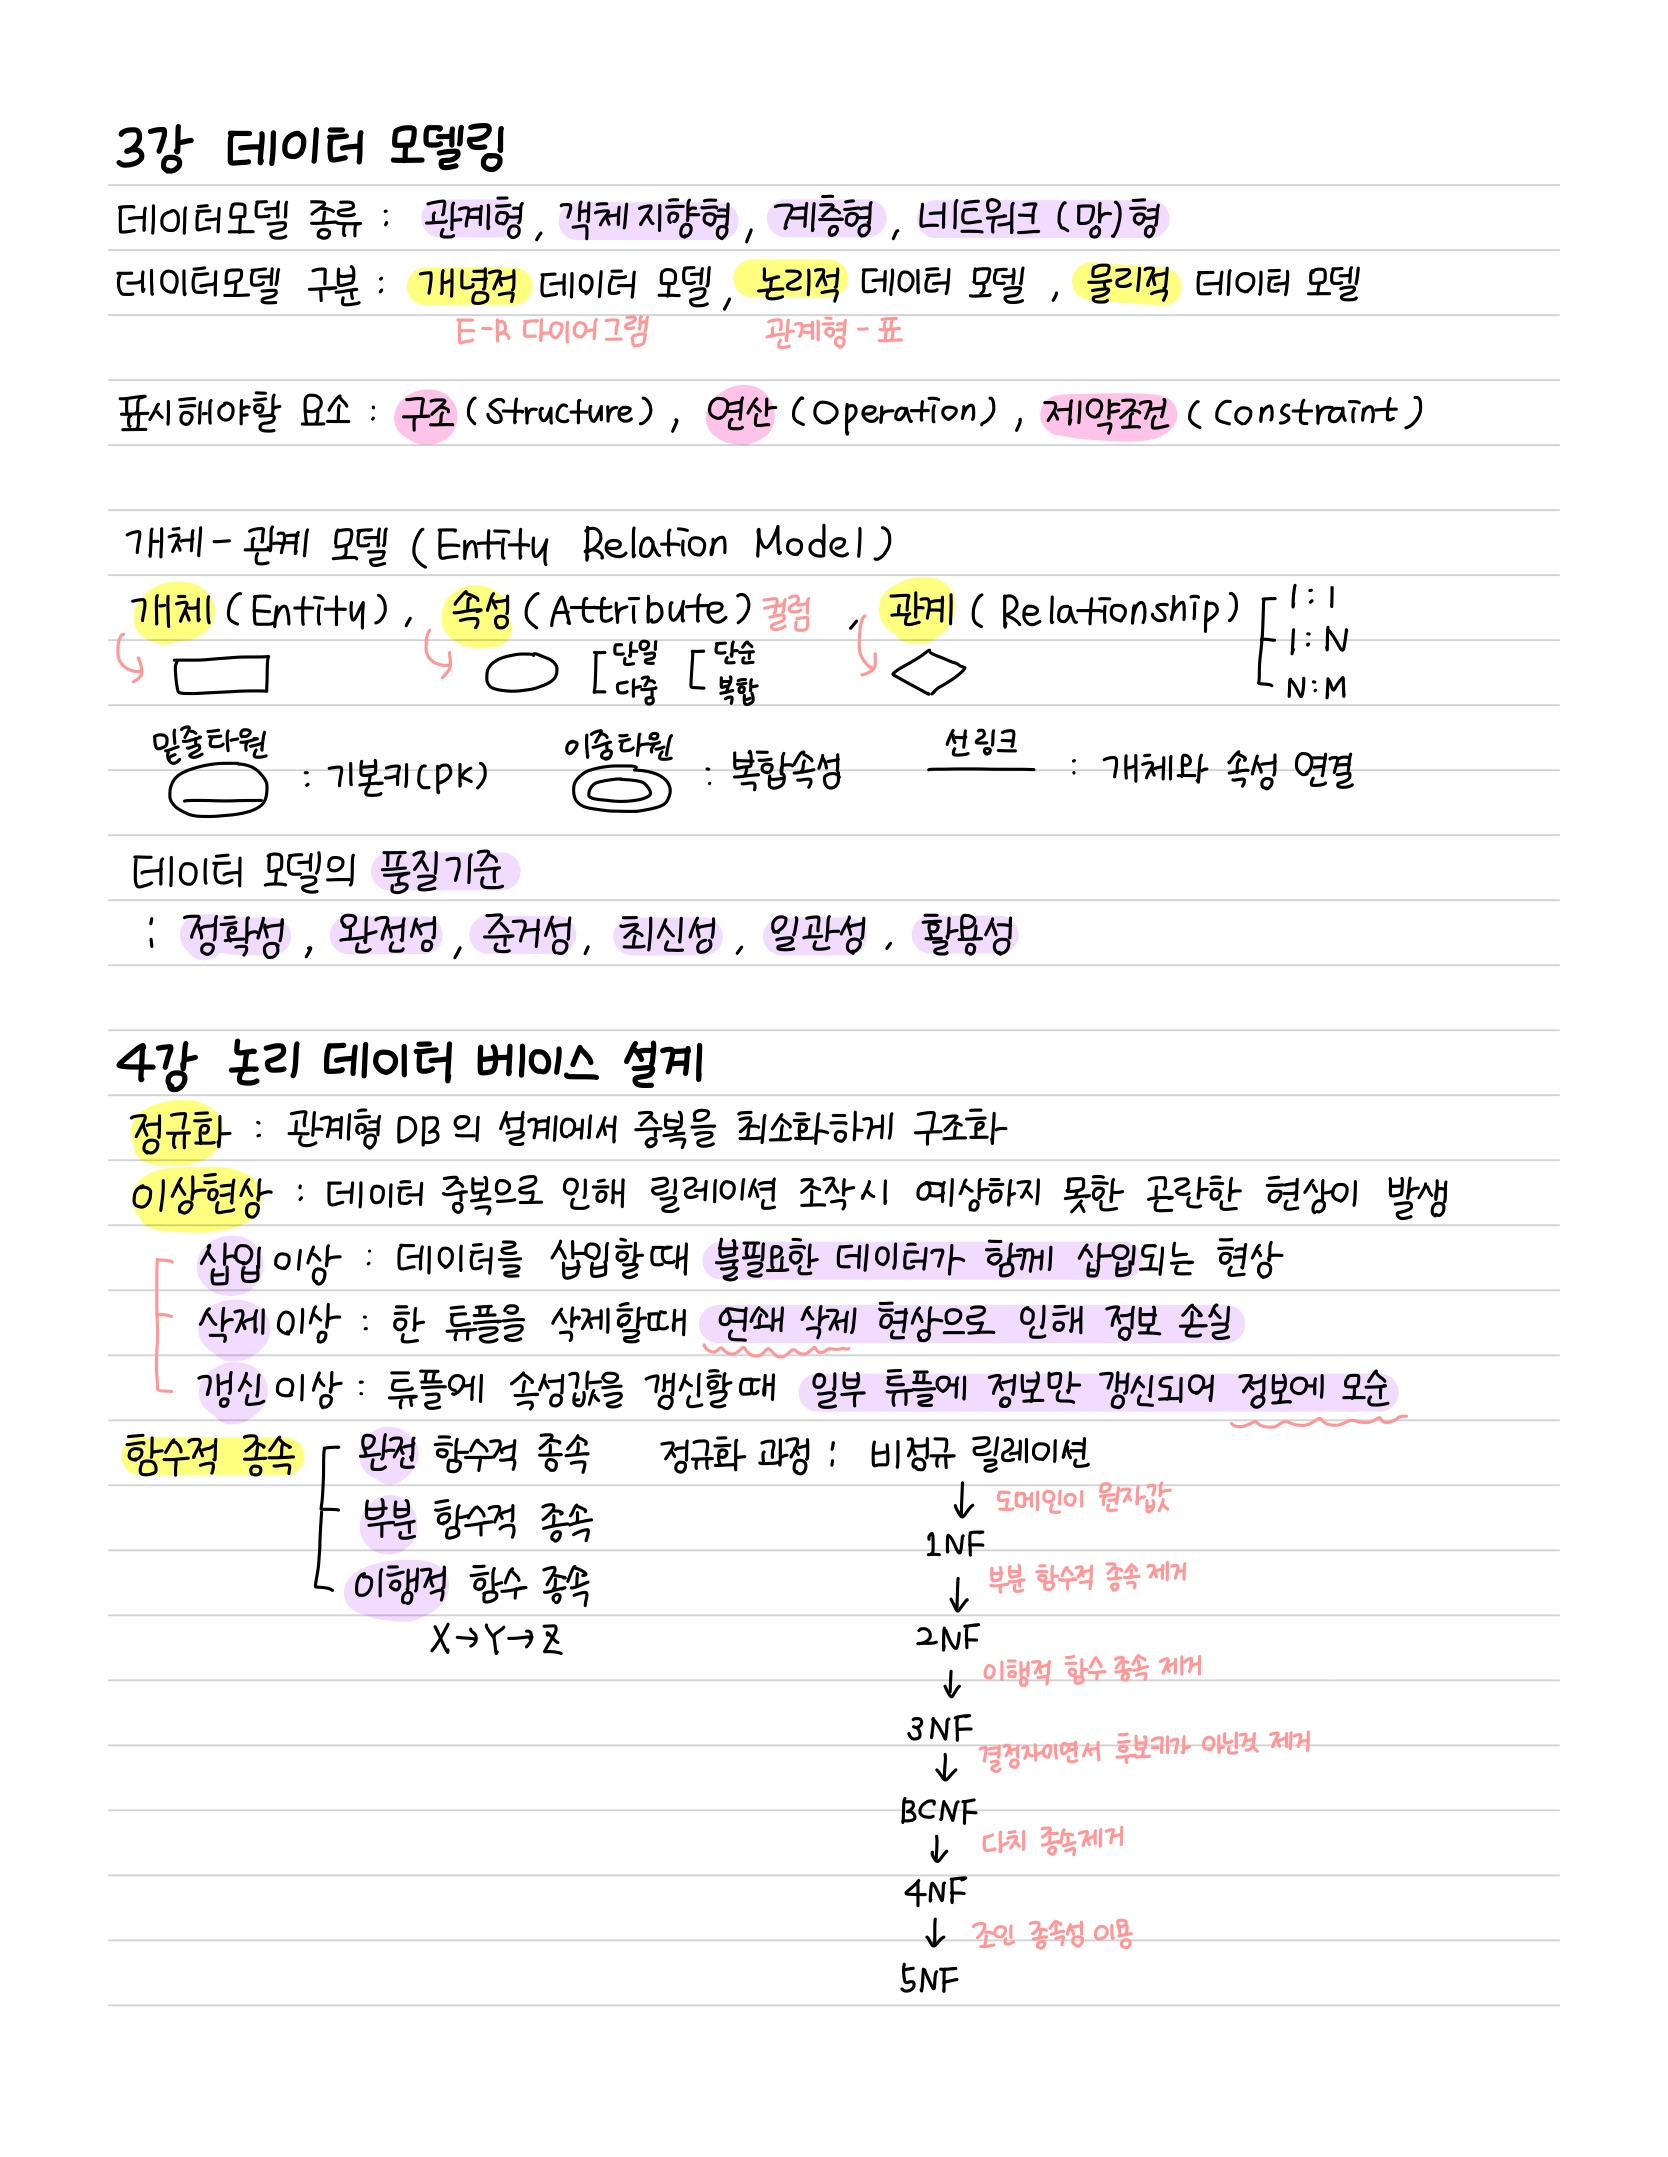 3강 데이터 모델링
데이터모델 종류 : 관계형, 객체지향형, 계층형, 네트워크(망)형
데이터모델 구분 : 개념적 데이터 모델, 논리적 데이터 모델, 물리적 데이터 모델
E-R 다이어그램 관계형-표
표시해야할 요소 : 구조(Structure), 연산(Operation), 제약조건(Constraint)
개체-관계 모델 (Entity Relation Model)
개체(Entity), 속성(Attribute) 컬럼, 관계(Relationship) 1:1
1:N
N:M
단일 단순
다중 복합
밑줄타원 : 기본키(PK) 이중타원 : 복합속성 선링크 : 개체와 속성 연결
데이터 모델의 품질기준
: 정확성, 완전성, 준거성, 최신성, 일관성, 활용성
4강 논리 데이터 베이스 설계
정규화 : 관계형 DB의 설계에서 중복을 최소화하게 구조화
이상현상 : 데이터 중복으로 인해 릴레이션 조작시 예상하지 못한 곤란한 현상이 발생
삽입이상 : 데이터를 삽입할때 불필요한 데이터가 함께 삽입되는 현상
삭제이상 : 한 튜플을 삭제할때 연쇄 삭제 현상으로 인해 정보 손실
갱신이상 : 튜플에 속성값을 갱신할때 일부 튜플에 정보만 갱신되어 정보에 모순
함수적 종속 완전 함수적 종속
부분 함수적 종속
이행적 함수 종속
X→Y→Z
정규화 과정 : 비정규 릴레이션
↓ 도메인이 원자값
1NF
↓ 부분 함수적 종속 제거
2NF
↓ 이행적 함수 종속 제거
3NF
↓ 결정자이면서 후보키가 아닌것 제거
BCNF
↓ 다치 종속제거
4NF
↓ 조인 종속성 이용
5NF